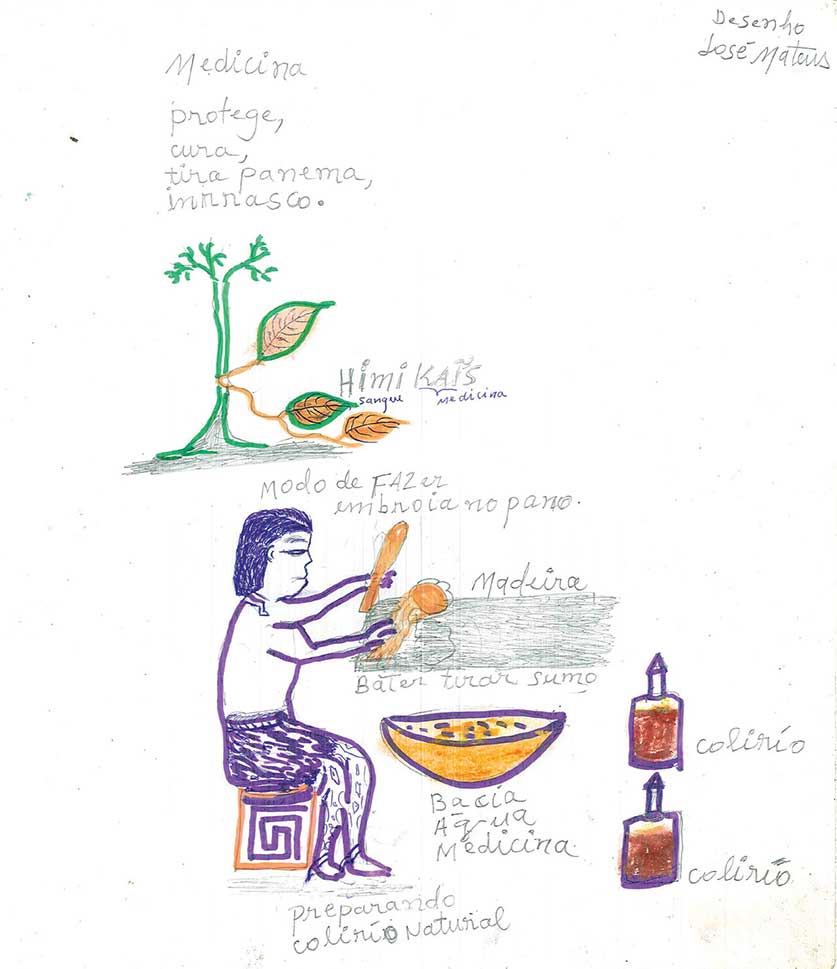 Desenho
José Mateus
Medicina
protege,
cura,
tira panema,
inrrasco.
HimiKAĨS
sangue medicina
Modo de FAZer
embroia no pano.
Madeira
Bater tirar sumo
colirío
Bacia
Agua
Medicina
colirío
preparando
colirío Natural